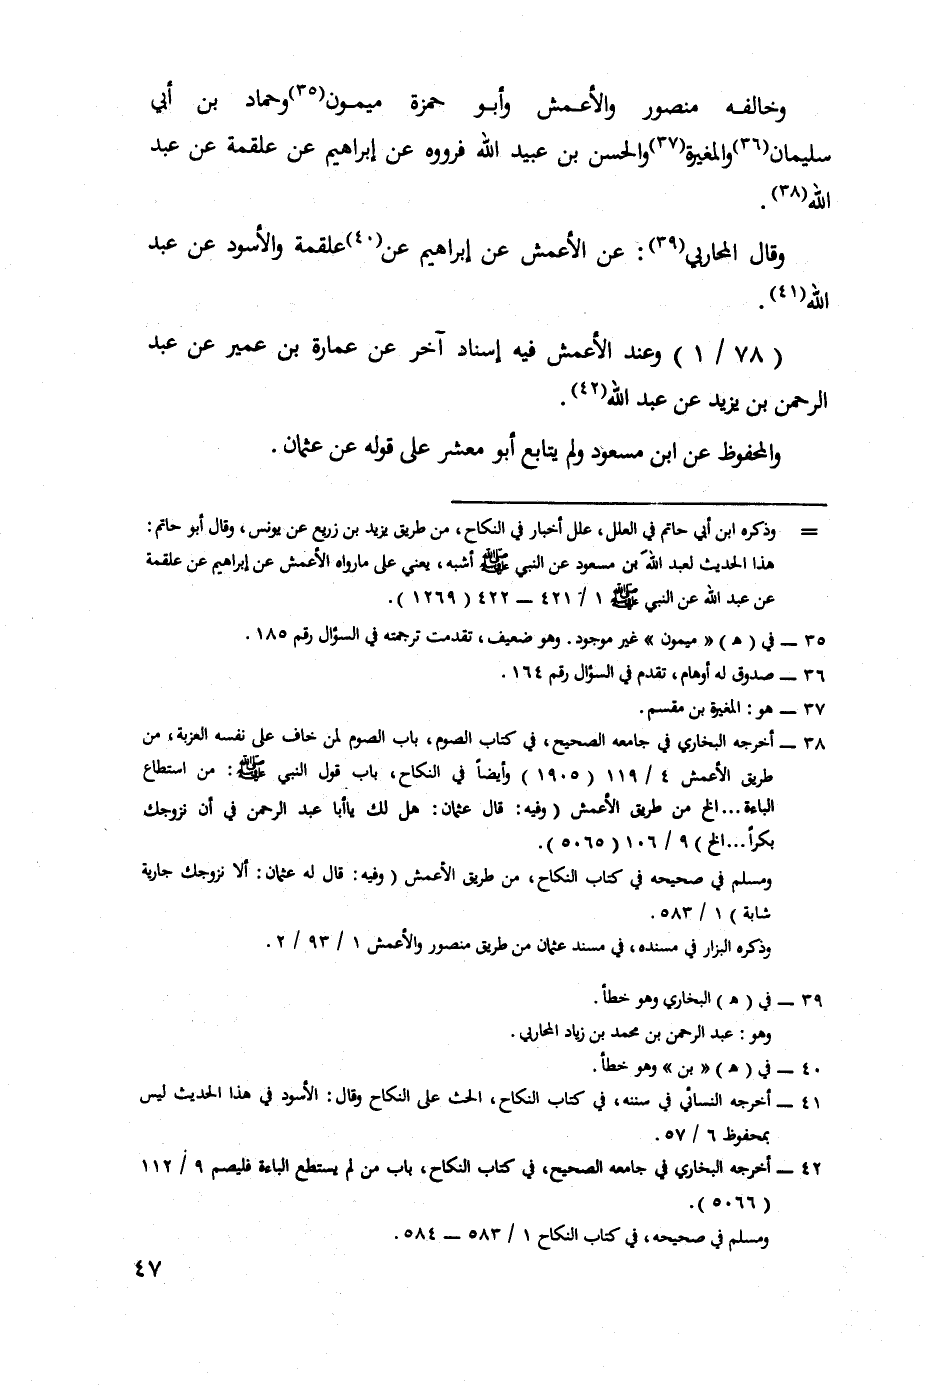 وخالفـه منصور والأعـمش وأبـو حمزة ميمـون(٣٥)وحماد بن أبي
سليمان(٣٦)والمغيرة(٣٧)والحسن بن عبيد الله فرووه عن إبراهيم عن علقمة عن عبد
الله(٣٨).
وقال المحاربي(٣٩): عن الأعمش عن إبراهيم عن(٤٠)علقمة والأسود عن عبد
الله(٤١).
( ٧٨ / ١ ) وعند الأعمش فيه إسناد آخر عن عمارة بن عمير عن عبد
الرحمن بن يزيد عن عبد الله(٤٢).
والمحفوظ عن ابن مسعود ولم يتابع أبو معشر على قوله عن عثمان.
= وذكره ابن أبي حاتم في العلل، علل أخبار في النكاح، من طريق يزيد بن زريع عن يونس، وقال أبو حاتم:
هذا الحديث لعبد الله بن مسعود عن النبي ﷺ أشبه، يعني على مارواه الأعمش عن إبراهيم عن علقمة
عن عبد الله عن النبي ﷺ ١ / ٤٢١ ــ ٤٢٢ ( ١٢٦٩ ).
٣٥ ــ في ( هـ ) « ميمون » غير موجود. وهو ضعيف، تقدمت ترجمته في السؤال رقم ١٨٥.
٣٦ ــ صدوق له أوهام، تقدم في السؤال رقم ١٦٤.
٣٧ ــ هو: المغيرة بن مقسم.
٣٨ ــ أخرجه البخاري في جامعه الصحيح، في كتاب الصوم، باب الصوم لمن خاف على نفسه العزبة، من
طريق الأعمش ٤ / ١١٩ ( ١٩٠٥ ) وأيضاً في النكاح، باب قول النبي ﷺ: من استطاع
الباءة...الخ من طريق الأعمش ( وفيه: قال عثمان: هل لك ياأبا عبد الرحمن في أن نزوجك
بكراً...الخ ) ٩ / ١٠٦ ( ٥٠٦٥ ).
ومسلم في صحيحه في كتاب النكاح، من طريق الأعمش ( وفيه: قال له عثمان: ألا نزوجك جارية
شابة ) ١ / ٥٨٣.
وذكره البزار في مسنده، في مسند عثمان من طريق منصور والأعمش ١ / ٩٣ / ٢.
٣٩ ــ في ( هـ ) البخاري وهو خطأ.
وهو: عبد الرحمن بن محمد بن زياد المحاربي.
٤٠ ــ في ( هـ ) « بن » وهو خطأ.
٤١ ــ أخرجه النسائي في سننه، في كتاب النكاح، الحث على النكاح وقال: الأسود في هذا الحديث ليس
بمحفوظ ٦ / ٥٧.
٤٢ ــ أخرجه البخاري في جامعه الصحيح، في كتاب النكاح، باب من لم يستطع الباءة فليصم ٩ / ١١٢
( ٥٠٦٦ ).
ومسلم في صحيحه، في كتاب النكاح ١ / ٥٨٣ ــ ٥٨٤.
٤٧